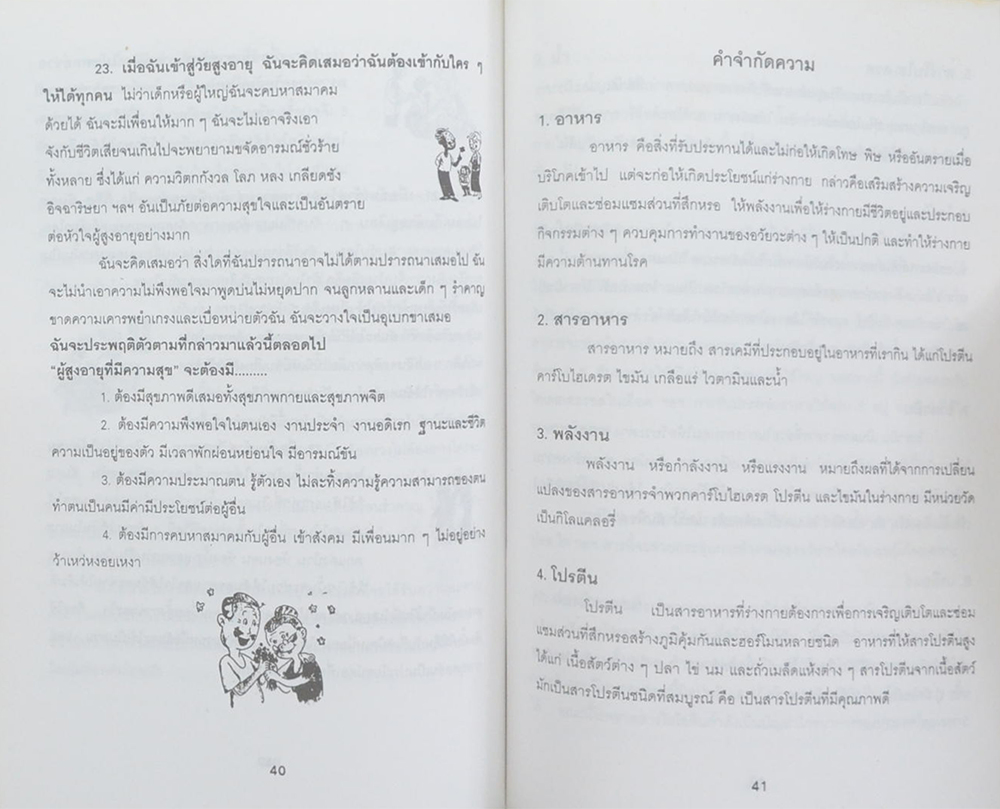 23. เมื่อฉันเข้าสู่วัยสูงอายุ ฉันจะคิดเสมอว่าฉันต้องเข้ากับใคร ๆ
ให้ได้ทุกคน ไม่ว่าเด็กหรือผู้ใหญ่ฉันจะคบหาสมาคม
ด้วยได้ ฉันจะมีเพื่อนให้มาก ๆ ฉันจะไม่เอาจริงเอา
จังกับชีวิตเสียจนเกินไปจะพยายามขจัดอารมณ์ชั่วร้าย
ทั้งหลาย ซึ่งได้แก่ ความวิตกกังวล โลภ หลง เกลียดชัง
อิจฉาริษยา ฯลฯ อันเป็นภัยต่อความสุขใจและเป็นอันตราย
ต่อหัวใจผู้สูงอายุอย่างมาก
ฉันจะคิดเสมอว่า สิ่งใดที่ฉันปรารถนาอาจไม่ได้ตามปรารถนาเสมอไป ฉัน
จะไม่นำเอาความไม่พึงพอใจมาพูดบ่นไม่หยุดปาก จนลูกหลานและเด็ก ๆ รำคาญ
ขาดความเคารพยำเกรงและเบื่อหน่ายตัวฉัน ฉันจะวางใจเป็นอุเบกขาเสมอ
ฉันจะประพฤติตัวตามที่กล่าวมาแล้วนี้ตลอดไป
"ผู้สูงอายุที่มีความสุข" จะต้องมี.........
1. ต้องมีสุขภาพดีเสมอทั้งสุขภาพกายและสุขภาพจิต
2. ต้องมีความพึงพอใจในตนเอง งานประจำ งานอดิเรก ฐานะและชีวิต
ความเป็นอยู่ของตัว มีเวลาพักผ่อนหย่อนใจ มีอารมณ์ขัน
3. ต้องมีความประมาณตน รู้ตัวเอง ไม่ละทิ้งความรู้ความสามารถของตน
ทำตนเป็นคนมีค่ามีประโยชน์ต่อผู้อื่น
4. ต้องมีการคบหาสมาคมกับผู้อื่น เข้าสังคม มีเพื่อนมาก ๆ ไม่อยู่อย่าง
ว้าเหว่หงอยเหงา
40
คำจำกัดความ
1. อาหาร
อาหาร คือสิ่งที่รับประทานได้และไม่ก่อให้เกิดโทษ พิษ หรืออันตรายเมื่อ
บริโภคเข้าไป แต่จะก่อให้เกิดประโยชน์แก่ร่างกาย กล่าวคือเสริมสร้างความเจริญ
เติบโตและซ่อมแซมส่วนที่สึกหรอ ให้พลังงานเพื่อให้ร่างกายมีชีวิตอยู่และประกอบ
กิจกรรมต่าง ๆ ควบคุมการทำงานของอวัยวะต่าง ๆ ให้เป็นปกติ และทำให้ร่างกาย
มีความต้านทานโรค
2. สารอาหาร
สารอาหาร หมายถึง สารเคมีที่ประกอบอยู่ในอาหารที่เรากิน ได้แก่โปรตีน
คาร์โบไฮเดรต ไขมัน เกลือแร่ ไวตามินและน้ำ
3. พลังงาน
พลังงาน หรือกำลังงาน หรือแรงงาน หมายถึงผลที่ได้จากการเปลี่ยน
แปลงของสารอาหารจำพวกคาร์โบไฮเดรต โปรตีน และไขมันในร่างกาย มีหน่วยวัด
เป็นกิโลแคลอรี่
4. โปรตีน
โปรตีน เป็นสารอาหารที่ร่างกายต้องการเพื่อการเจริญเติบโตและซ่อม
แซมส่วนที่สึกหรอสร้างภูมิคุ้มกันและฮอร์โมนหลายชนิด อาหารที่ให้สารโปรตีนสูง
ได้แก่ เนื้อสัตว์ต่าง ๆ ปลา ไข่ นม และถั่วเมล็ดแห้งต่าง ๆ สารโปรตีนจากเนื้อสัตว์
มักเป็นสารโปรตีนชนิดที่สมบูรณ์ คือ เป็นสารโปรตีนที่มีคุณภาพดี
41